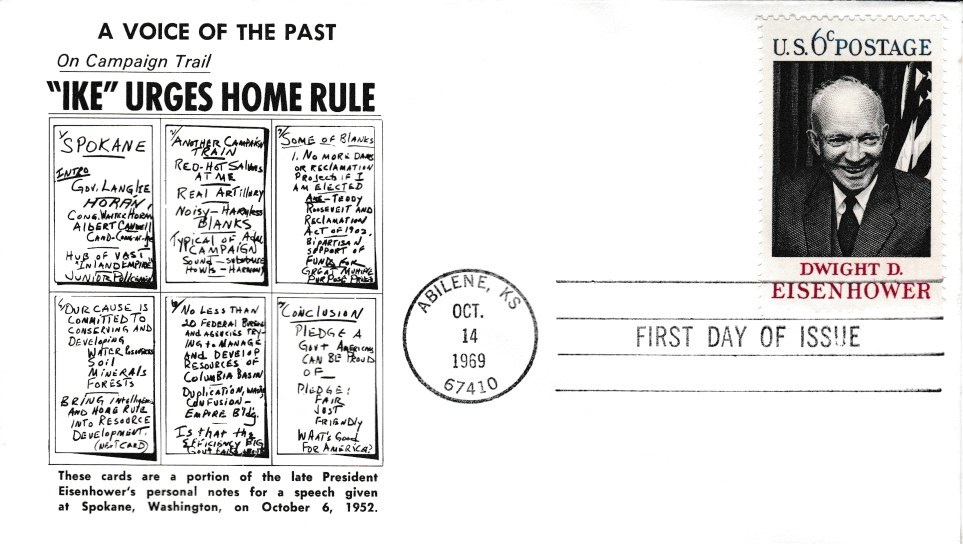 A VOICE OF THE PAST
On Campaign Trail
"IKE" URGES HOME RULE
1/
SPOKANE
INTRO
GOV. LANGLIE
HORAN,
CONG. WALTER HORAN
ALBERT
CAND-CONG-N-
HUB OF VAST
"INLAND EMPIRE
JUNIOR POLICEMEN
2/
ANOTHER CAMPAIGN
TRAIN
RED-HOT SALVOS
AT ME
REAL ARTILLERY
NOISY-HARMLESS
BLANKS
TYPICAL OF ADM.
CAMPAIGN
SOUND-SUBSTANCE
HOWLS-HARMONY
3/
SOME OF BLANKS
1. NO MORE DAMS
OR RECLAMATION
PROJECTS IF I
AM ELECTED
ANS-TEDDY
ROOSEVELT AND
RECLAMATION
ACT OF 1902.
BIPARTISAN
SUPPORT OF
FUNDS FOR
GREAT MULTIPLE
PURPOSE PROJECTS
OUR CAUSE IS
COMMITTED TO
CONSERVING AND
DEVELOPING
WATER RESOURCES
SOIL
MINERALS
FORESTS
BRING INTELLIGENCE
AND HOME RULE
INTO RESOURCE
DEVELOPMENT.
(NEXT CARD)
NO LESS THAN
20 FEDERAL BUREAUS
AND AGENCIES TRY-
ING TO MANAGE
AND DEVELOP
RESOURCES OF
COLUMBIA BASIN
DUPLICATION, WASTE
CONFUSION-
EMPIRE BLDG.
IS THAT THE
EFFICIENCY BIG
GOVT
CONCLUSION
PLEDGE A
GOVT AMERICANS
CAN BE PROUD
OF_
PLEDGE:
FAIR
JUST
FRIENDLY
WHAT'S GOOD
FOR AMERICA?
These cards are a portion of the late President
Eisenhower's personal notes for a speech given
at Spokane, Washington, on October 6, 1952.
ABILENE, KS
OCT.
14
1969
67410
U.S. 6c POSTAGE
DWIGHT D.
EISENHOWER
FIRST DAY OF ISSUE